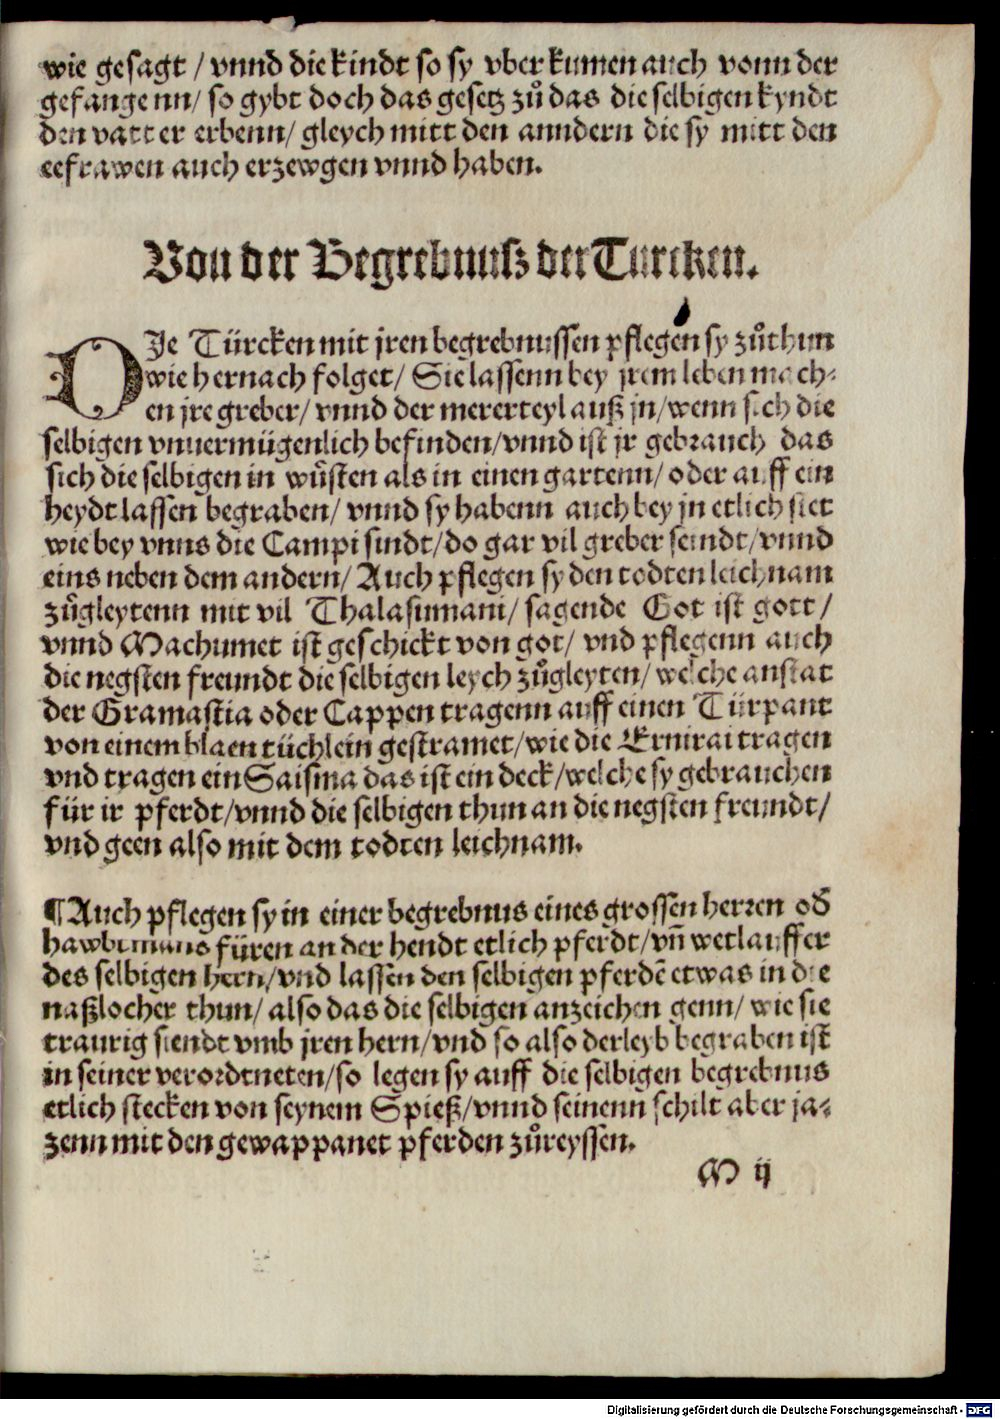 wie gesagt / vnnd die kindt so sy vberkumen auch vonn der
gefangenn/ so gybt doch das gesetz zuͦ das die selbigen kyndt
den vatter erbenn/ gleych mitt den anndern die sy mitt den
eefrawen auch erzewgen vnnd haben.
Von der Begrebnuß der Turcken.
DIe Türcken mit jren begrebnussen pflegen sy zuͦthun
wie hernach folget/ Sie lassenn bey jrem leben mach⸗
en jre greber/ vnnd der mererteyl auß jn/ wenn sich die
selbigen vnuermügenlich befinden/ vnnd ist jr gebrauch das
sich die selbigen in wuͤsten als in einen gartenn/ oder auff ein
heydt lassen begraben/ vnnd sy habenn auch bey jn etlich stet
wie bey vnns die Campi sindt/ do gar vil greber seindt/ vnnd
eins neben dem andern/ Auch pflegen sy den todten leichnam
zuͦgleytenn mit vil Thalasumani/ sagende Got ist gott/
vnnd Machumet ist geschickt von got/ vnd pflegenn auch
die negsten freundt die selbigen leych zuͦgleyten/ welche anstat
der Gramastia oder Cappen tragenn auff einen Türpant
von einem blaen tüchlein gestramet/ wie die Ermirai tragen
vnd tragen ein Saisma das ist ein deck/ welche sy gebrauchen
für ir pferdt/ vnnd die selbigen thun an die negsten freundt/
vnd geen also mit dem todten leichnam.
¶ Auch pflegen sy in einer begrebnus eines grossen herren od̕
hawbtmans füren an der hendt etlich pferdt/ vn̄ wetlauffer
des selbigen hern/ vnd lassen den selbigen pferdē etwas in die
naßlocher thun/ also das die selbigen anzeichen genn/ wie sie
traurig siendt vmb jren hern/ vnd so also der leyb begraben ist
in seiner verordtneten/ so legen sy auff die selbigen begrebnus
etlich stecken von seynem Spieß/ vnnd seinenn schilt aber ja⸗
zenn mit den gewappanet pferden zuͦreyssen.
M ij
Digitalisierung gefördert durch die Deutsche Forschungsgemeinschaft - DFG